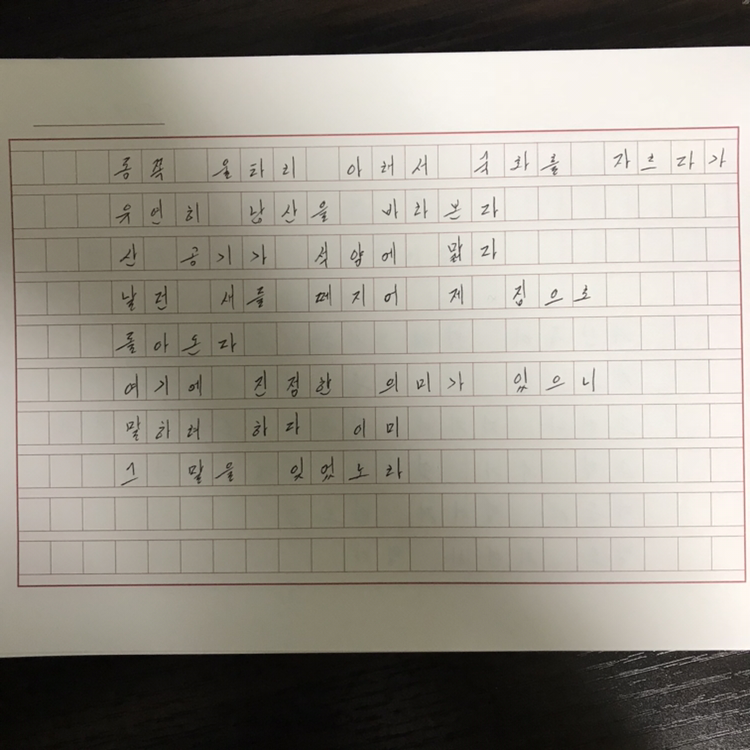 동쪽 울타리 아래서 국화를 자르다가
유연히 남산을 바라본다
산 공기가 석양에 맑다
날던 새들 떼지어 제 집으로
돌아온다
여기에 진정한 의미가 있으니
말하려 하다 이미
그 말을 잊었노라